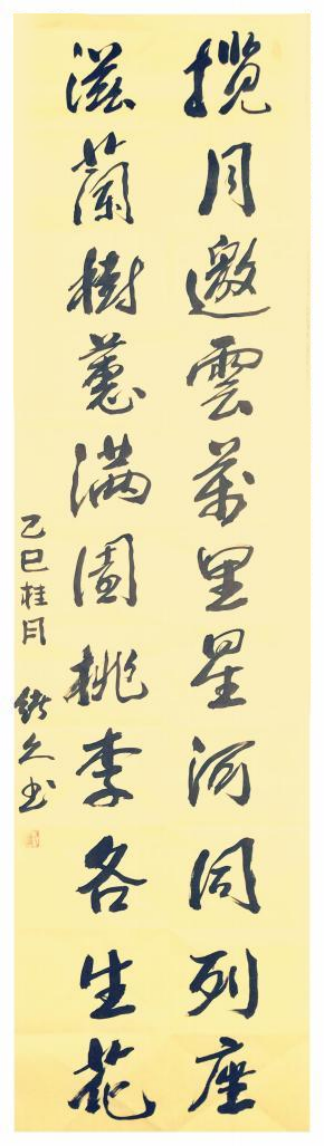 揽月邀雲萬里星河同列座
滋蘭樹蕙满園桃李各生花
乙巳桂月 久书